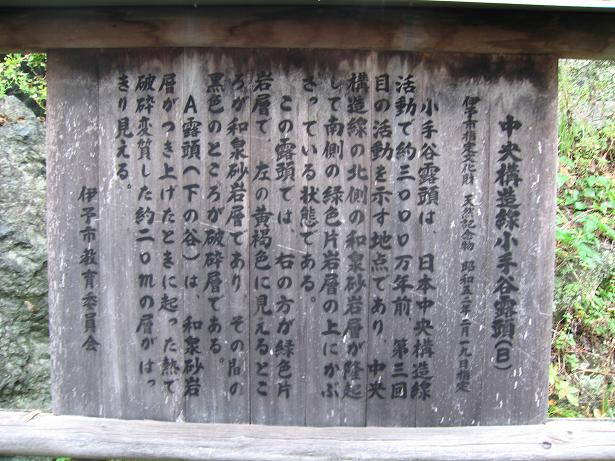 中央構造線小手谷露頭(B)
伊予市指定文化財 天然記念物 昭和五二年二月一九日指定
小手谷露頭は、日本中央構造線
活動で約三〇〇〇万年前 第三回
目の活動を示す地点であり、中央
構造線の北側の和泉砂岩層が隆起
して南側の緑色片岩層の上にかぶ
さっている状態である。
この露頭では、右の方が緑色片
岩層で 左の黄褐色に見えるとこ
ろが和泉砂岩層であり、その間の
黒色のところが破砕層である。
A露頭(下の谷)は、和泉砂岩
層がつき上げたときに起った熱で
破砕変質した約二〇mの層がはっ
きり見える。
伊予市教育委員会